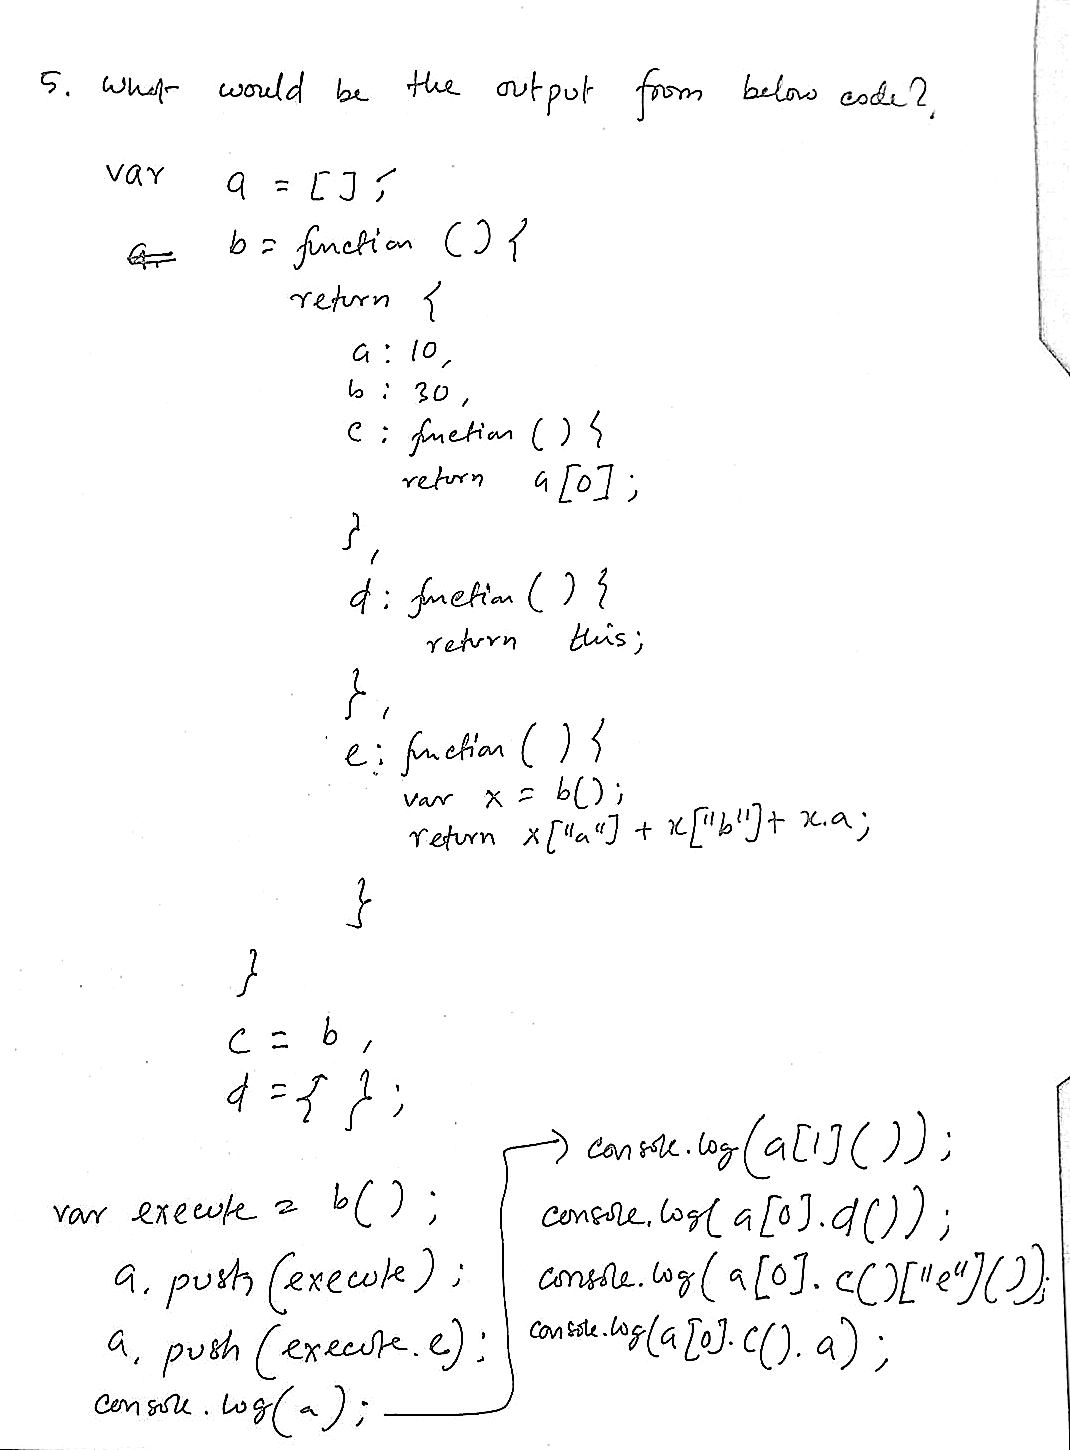 5. What would be the output from below code?
var a = [];
b = function () {
return {
a : 10,
b : 30,
c : function () {
return a[0];
},
d : function () {
return this;
},
e : function () {
var x = b();
return x["a"] + x["b"] + x.a;
}
}
c = b,
d = { };
var execute = b();
a.push(execute);
a.push(execute.e);
console.log(a);
console.log(a[1]());
console.log(a[0].d());
console.log(a[0].c()["e"]());
console.log(a[0].c().a);